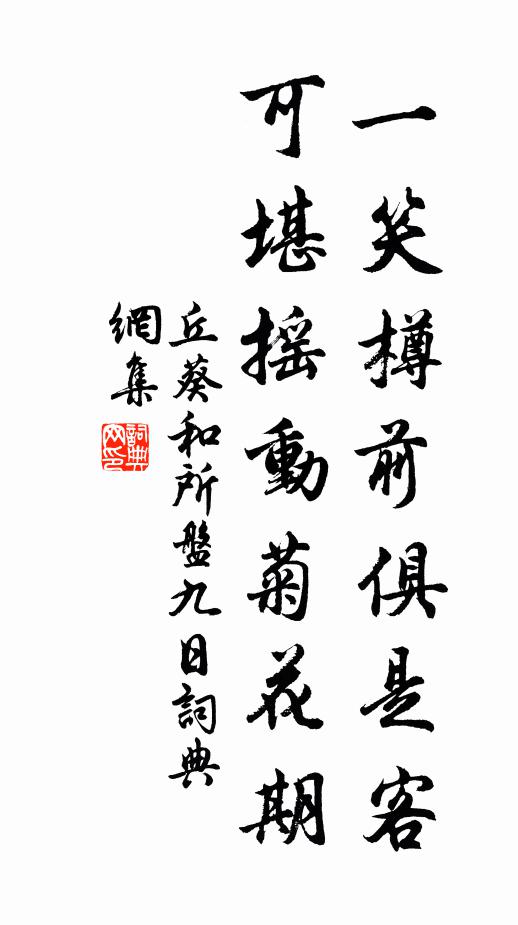 一笑樽前俱是客
可堪摇動菊花期
丘葵和所盤九日詞典
網集
詞典網印